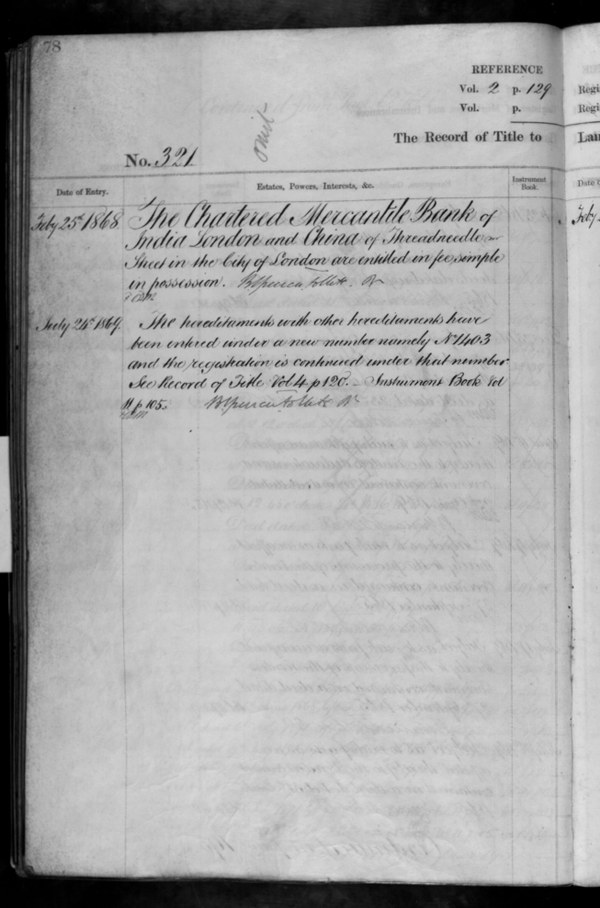 78
REFERENCE
Vol. 2 p. 129
Vol. p.
omit
The Record of Title to
No. 321
Date of Entry.
Estates, Powers, Interests, &c.
Instrument Book.
Feby 25th 1868
The Chartered Mercantile Bank of
India London and China of Threadneedle
Street in the City of London are entitled in fee simple
in possession.
July 24th 1869.
The hereditaments with other hereditaments have
been entered under a new number namely No 1403
and the registration is continued under that number
See Record of Title Vol 4 p 120. – Instrument Book Vol
11 p 105.
Regi
Regi
Lan
Date o
Feby